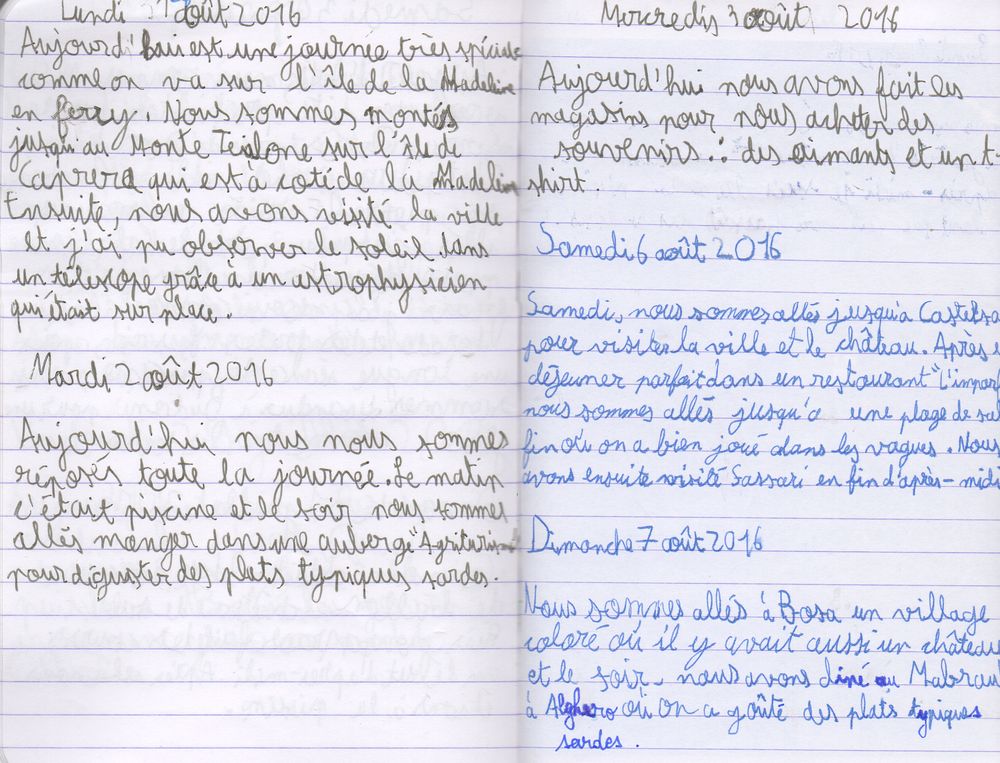 Lundi 1 août 2016
Aujourd'hui est une journée très spéciale
comme on va sur l'île de la Madeleine
en ferry. Nous sommes montés
jusqu'au Monte Teialone sur l'île de
Caprera qui est à coté de la Madeleine
Ensuite, nous avons visité la ville
et j'ai pu observer le soleil dans
un télescope grâce à un astrophysicien
qui était sur place.
Mardi 2 août 2016
Aujourd'hui nous nous sommes
réposés toute la journée. Le matin
c'était piscine et le soir nous sommes
allés manger dans une auberge "Agriturismo"
pour déguster des plats typiques sardes.
Mercredis 3 août 2016
Aujourd'hui nous avons fait les
magasins pour nous acheter des
souvenirs : des aimants et un t-
shirt.
Samedi 6 août 2016
Samedi, nous sommes allés jusqu'a Castelsa
pour visiter la ville et le château. Après
déjeuner parfait dans un restaurant "L'imparf
nous sommes allés jusqu'a une plage de sa
fin où on a bien joué dans les vagues. Nous
avons ensuite visité Sassari en fin d'après-midi
Dimanche 7 août 2016
Nous sommes allés à Bosa un village
coloré où il y avait aussi un château
et le soir, nous avons diné au Mabrau
à Alghero où on a goûté des plats typiques
sardes.